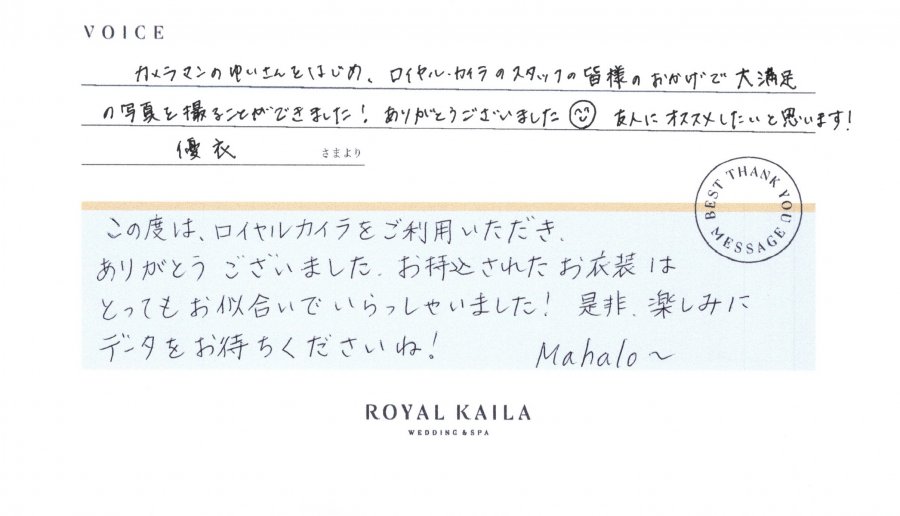 VOICE
カメラマンのゆいさんをはじめ、ロイヤル・カイラのスタッフの皆様のおかげで大満足
の写真を撮ることができました！ありがとうございました☺ 友人にオススメしたいと思います！
優衣 さまより
BEST THANK YOU MESSAGE
この度は、ロイヤルカイラをご利用いただき、
ありがとうございました。お持込されたお衣装は
とってもお似合いでいらっしゃいました！是非、楽しみに
データをお待ちくださいね！ Mahalo～
ROYAL KAILA
WEDDING & SPA